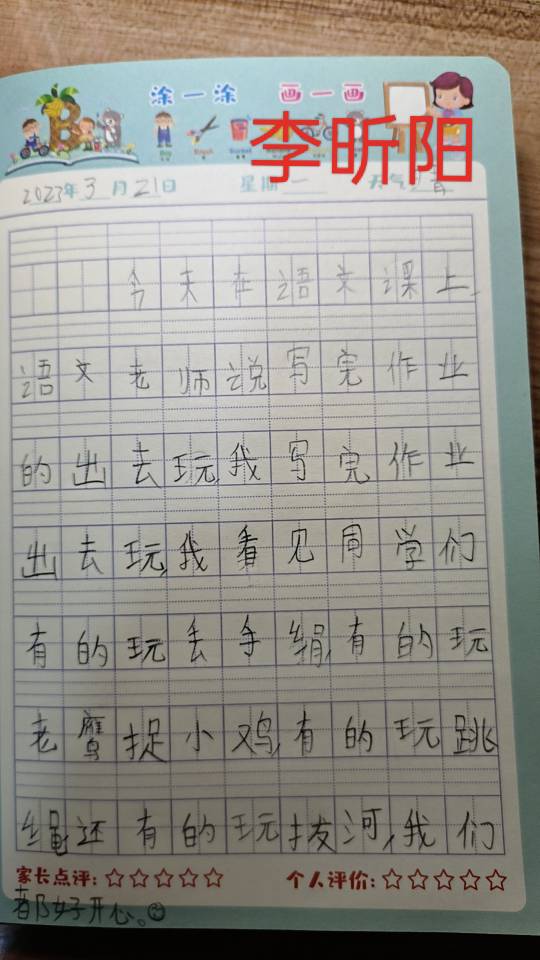 涂一涂 画一画
李昕阳
2023年3月21日 星期一 天气
今天在语文课上,
语文老师说写完作业
的出去玩,我写完作业
出去玩,我看见同学们
有的玩丢手绢,有的玩
老鹰捉小鸡,有的玩跳
绳,还有的玩拔河,我们
家长点评:☆☆☆☆☆ 个人评价:☆☆☆☆☆
都好开心。